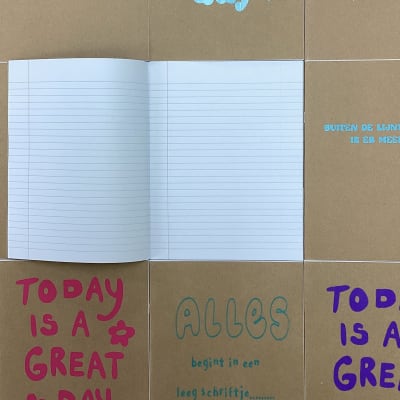 BUITEN DE LIJN
IS ER MEE
TODAY
IS A
GREAT
DAY
ALLES
begint in een
leeg schriftje.........
TODA
IS A
GRE